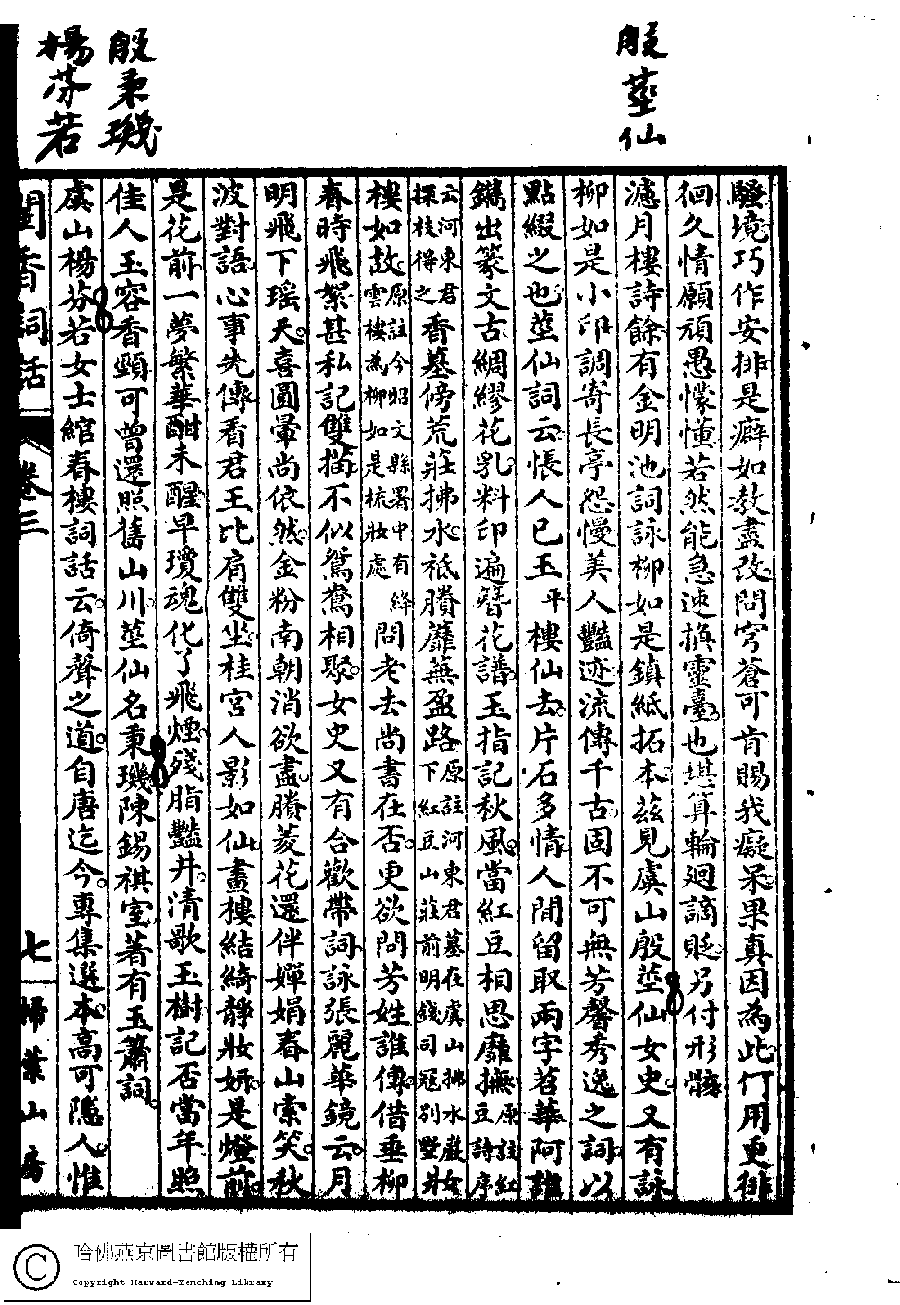 殷莖仙
殷秉璣
楊芬若
騷境巧作安排是癖如教盡改問穹蒼可肯賜我癡呆果真因為此仃用更徘
徊久情願頑愚懞懂若然能急速換靈臺也堪算輪廻謫貶另付形骸
濾月樓詩餘有金明池詞詠柳如是鎮紙拓本茲見虞山殷莖仙女史又有詠
柳如是小印調寄長亭怨慢美人豔迹流傳千古固不可無芳馨秀逸之詞以
點綴之也莖仙詞云悵人已玉平樓仙去片石多情人間留取兩字苕華阿誰
鐫出篆文古綢繆花乳料印遍簪花譜玉指記秋風當紅豆相思靡撫原註紅豆詩序
云河東君探枝得之香墓傍荒莊拂水祗賸蘼蕪盈路原註河東君墓在虞山拂水巖女下紅豆山莊前明錢司寇別墅也
樓如故原註今昭文縣署中有絳雲樓為柳如是梳妝處問老去尚書在否更欲問芳姓誰傳借垂柳
春時飛絮甚私記雙描不似鴛鴦相聚女史又有合歡帶詞詠張麗華鏡云月
明飛下瑤天喜圓暈尚依然金粉南朝消欲盡賸菱花還伴嬋娟春山索笑秋
波對語心事先傳看君王比肩雙坐桂宮人影如仙畫樓結綺靜妝妍是燈前
是花前一夢繁華酣未醒早瓊魂化了飛煙殘脂豔井清歌玉樹記否當年照
佳人玉容香頸可曾還照舊山川莖仙名秉璣陳錫祺室著有玉簫詞
虞山楊芬若女士綰春樓詞話云倚聲之道自唐迄今專集選本高可隱人惟
閨香詞話 卷三 七 掃葉山房
哈佛燕京圖書館版權所有
Copyright Harvard-Yenching Library